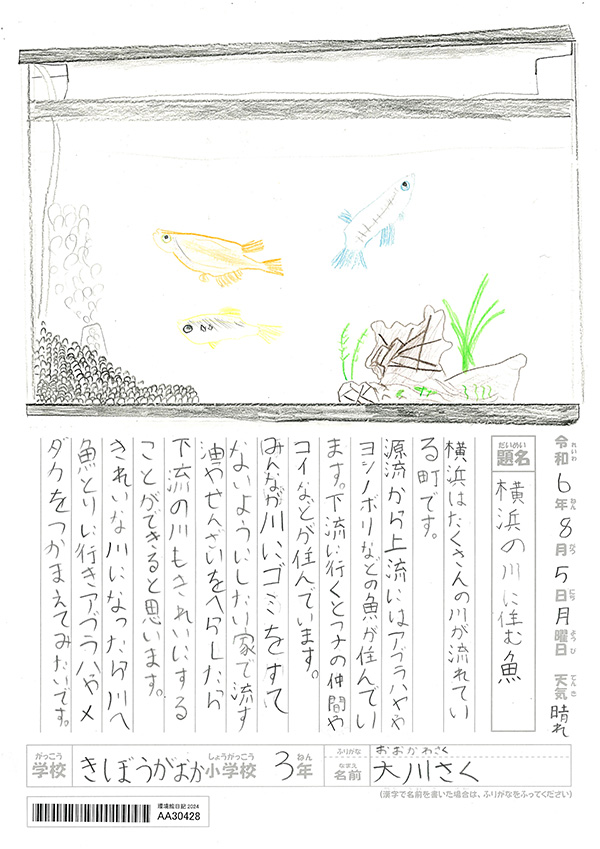 令和6年8月5日月曜日 天気 晴れ
れいわ ねん がつ にち ようび てんき
だいめい
題名 横浜の川に住む魚
横浜はたくさんの川が流れてい
る町です。
源流から上流にはアブラハヤや
ヨシノボリなどの魚が住んでい
ます。下流に行くとフナの仲間や
コイなどが住んでいます。
みんなが川にゴミをすて
ないようにしたり家で流す
油やせんざいをへらしたら
下流の川もきれいにする
ことができると思います。
きれいな川になったら川へ
魚とりに行きアブラハヤやメ
ダカをつかまえてみたいです。
がっこう しょうがっこう ねん ふりがな おおかわさく
学校 きぼうがおか小学校 3年 なまえ 名前 大川さく
(漢字で名前を書いた場合は、ふりがなをふってください)
環境絵日記 2024
AA30428